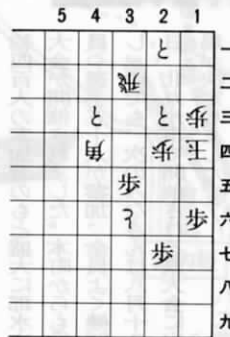 5 4 3 2 1
と 一
飛 二
と と 歩 三
角 歩 玉 四
歩 五
と 歩 六
歩 七
八
九